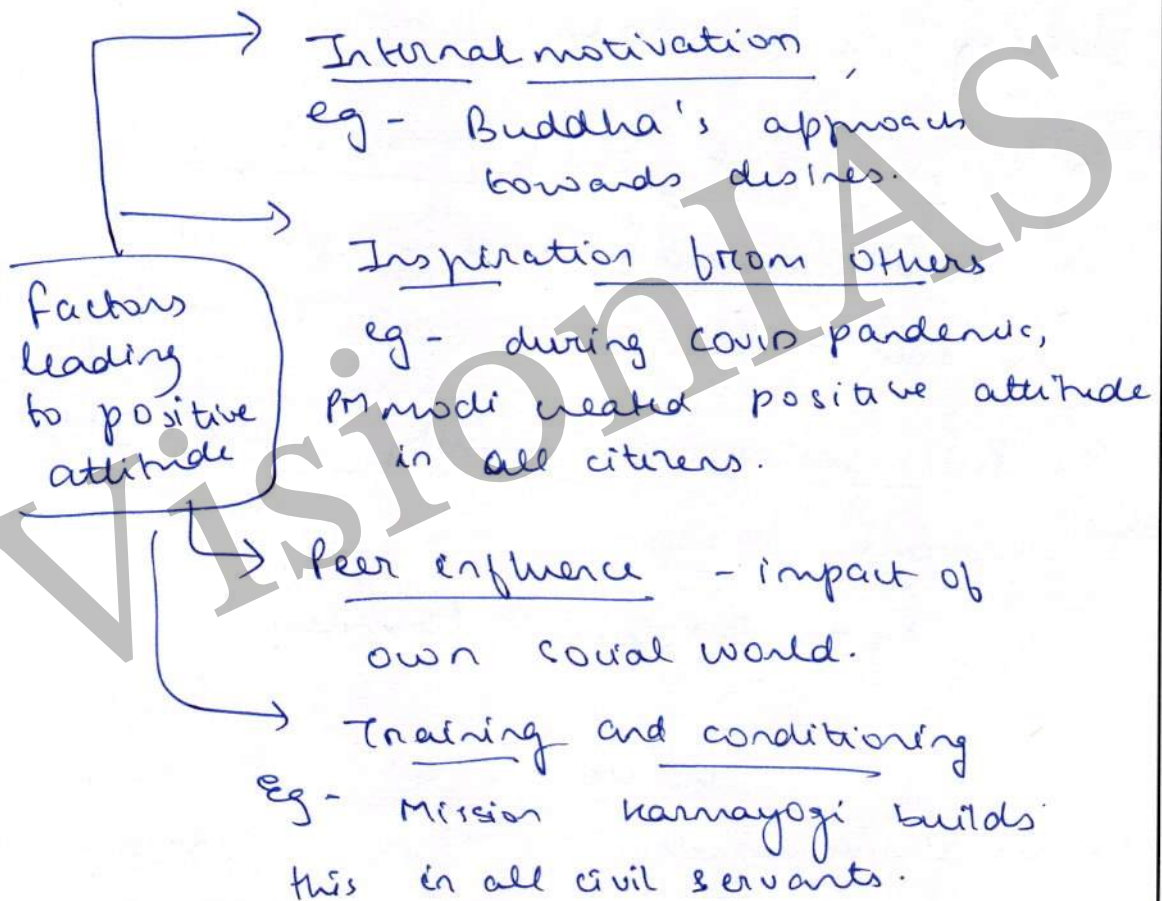 Internal motivation,
eg - Buddha's approach
towards desires.
Inspiration from others
eg - during COVID pandemic,
PM modi created positive attitude
in all citizens.
Factors
leading
to positive
attitude
Peer influence - impact of
own social world.
Training and conditioning
Eg - Mission karmayogi builds
this in all civil servants.
VisionIAS